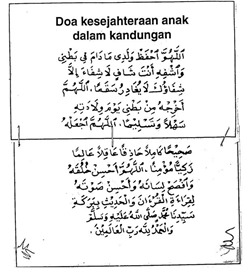 Doa kesejahteraan anak
dalam kandungan
اَللّٰهُمَّ احْفَظْ وَلَدِى مَا دَامَ فِي بَطْنِي
وَاشْفِهِ أَنْتَ شَافٍ لَا شِفَاءَ إِلَّا
شِفَاؤُكَ لَا يُغَادِرُ سَقَمًا. اَللّٰهُمَّ
أَخْرِجْهُ مِنْ بَطْنِي يَوْمَ وِلَادَتِهِ
سَهْلًا وَتَسْلِيمًا. اَللّٰهُمَّ اجْعَلْهُ
صَحِيحًا كَامِلًا حَاذِقًا عَاقِلًا عَالِمًا
زَكِيًّا مُؤْمِنًا. اَللّٰهُمَّ أَحْسِنْ خُلُقَهُ
وَأَفْصِحْ لِسَانَهُ وَأَحْسِنْ صَوْتَهُ
لِقِرَاءَةِ الْقُرْءَانِ وَالْحَدِيثِ بِبَرَكَةِ
سَيِّدِنَا مُحَمَّدٍ صَلَّى اللهُ عَلَيْهِ وَسَلَّمَ
وَالْحَمْدُ لِلّٰهِ رَبِّ الْعَالَمِينَ.